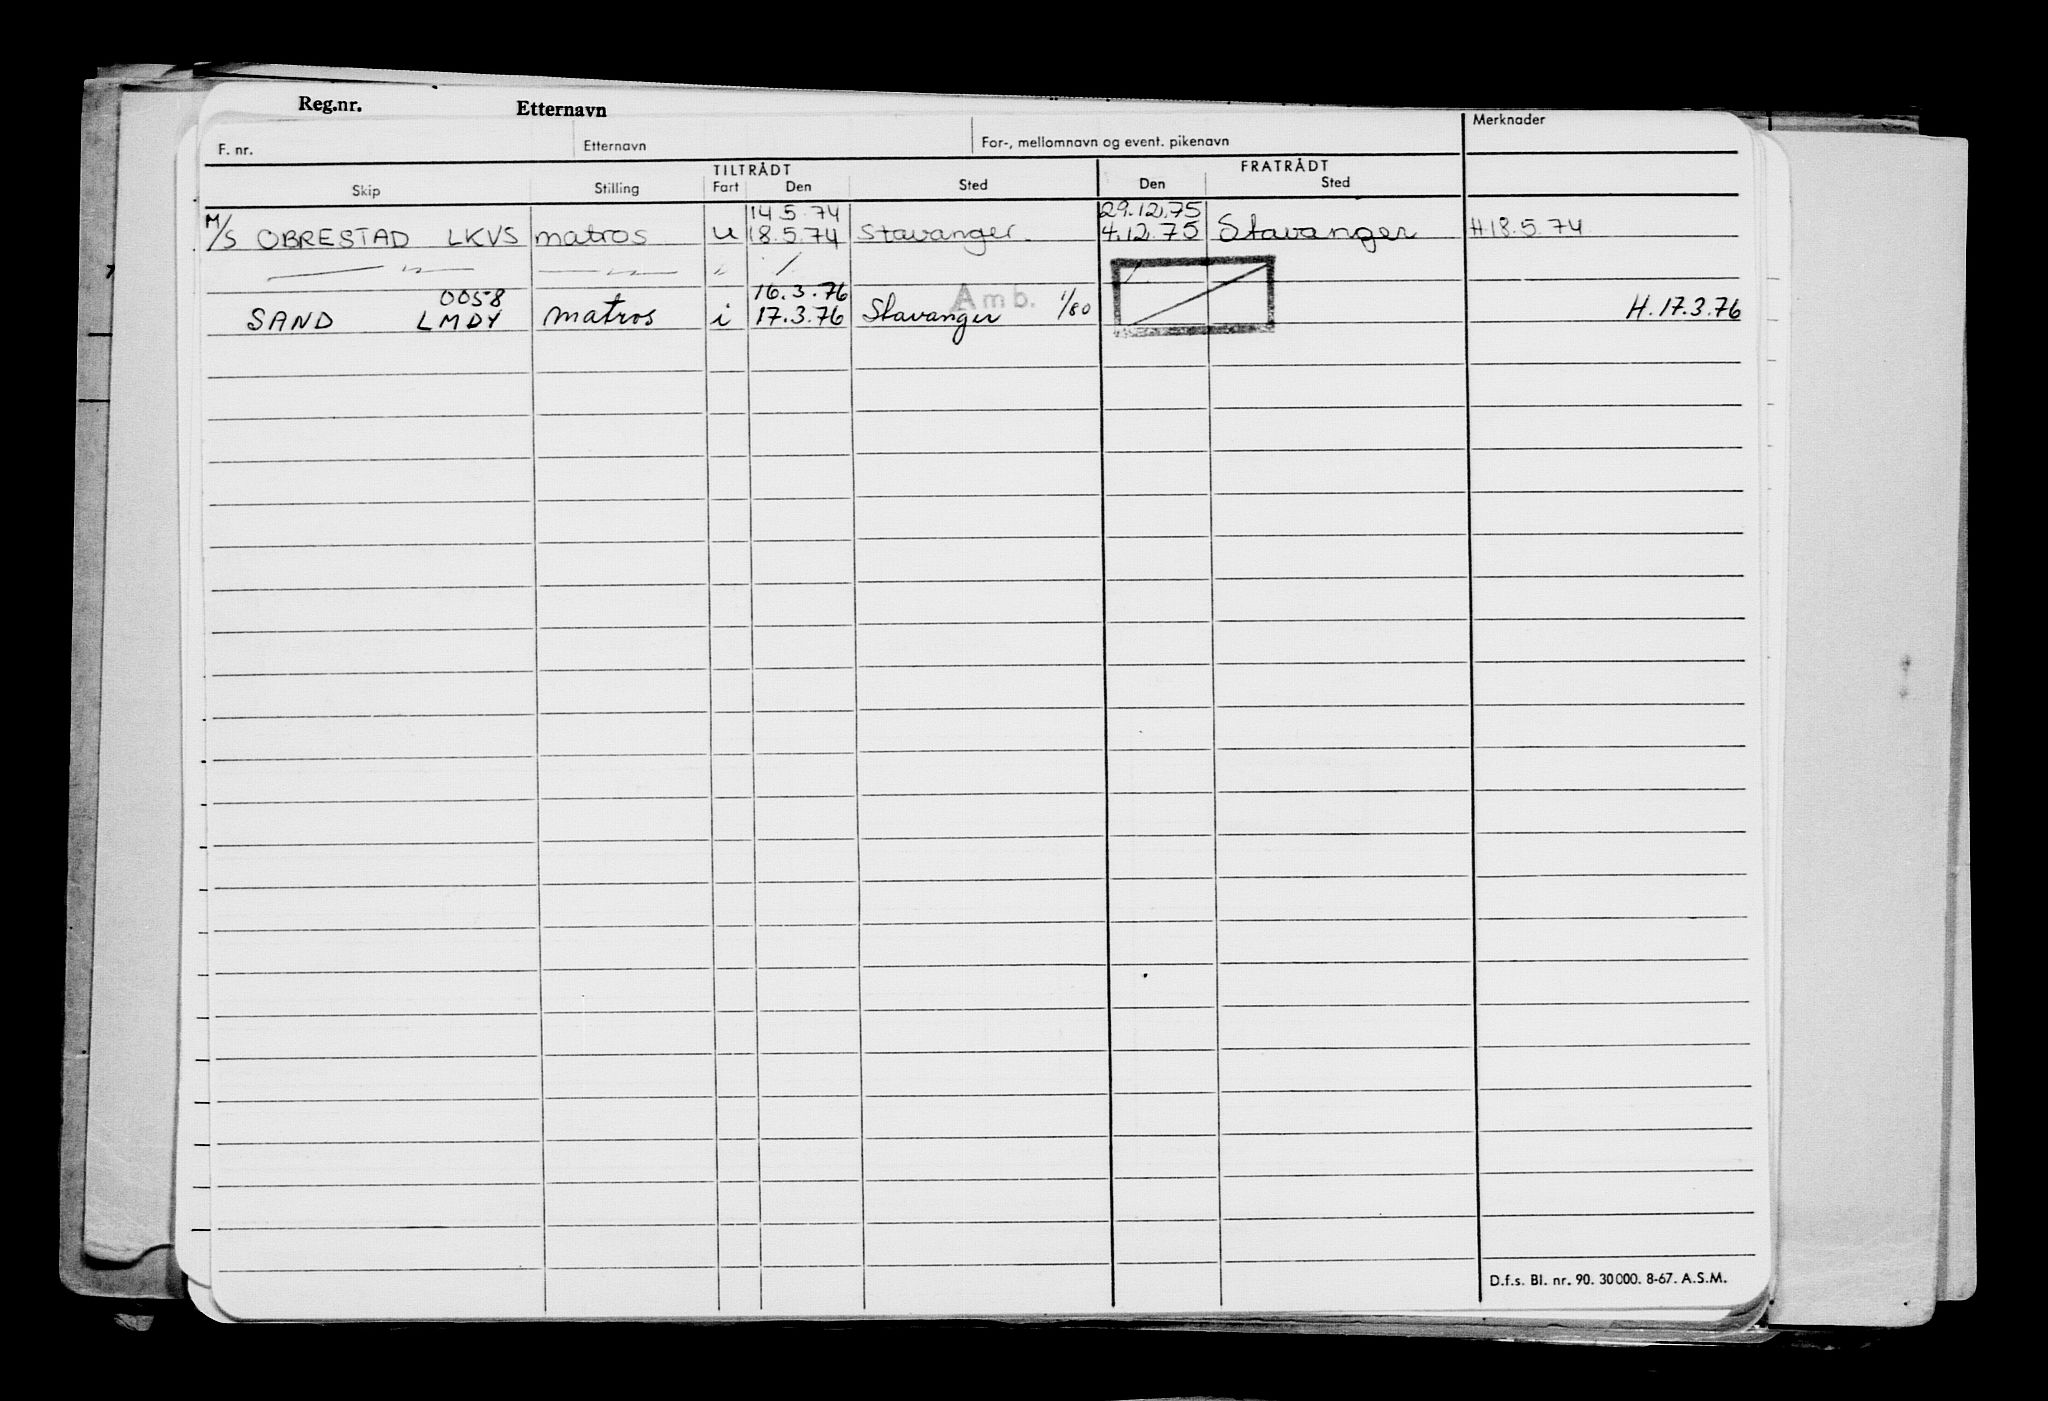 Reg.nr. Etternavn
F. nr. Etternavn For-, mellomnavn og event. pikenavn Merknader
TILTRÅDT FRATRÅDT
Skip Stilling Fart Den Sted Den Sted
14.5.74 29.12.75
M/S OBRESTAD LKVS matros u 18.5.74 Stavanger 4.12.75 Stavanger H.18.5.74
— " — — " — " /
0058 16.3.76 Amb.
SAND LMDY matros i 17.3.76 Stavanger 1/80 H.17.3.76
D.f.s. Bl. nr. 90. 30000. 8-67. A.S.M.